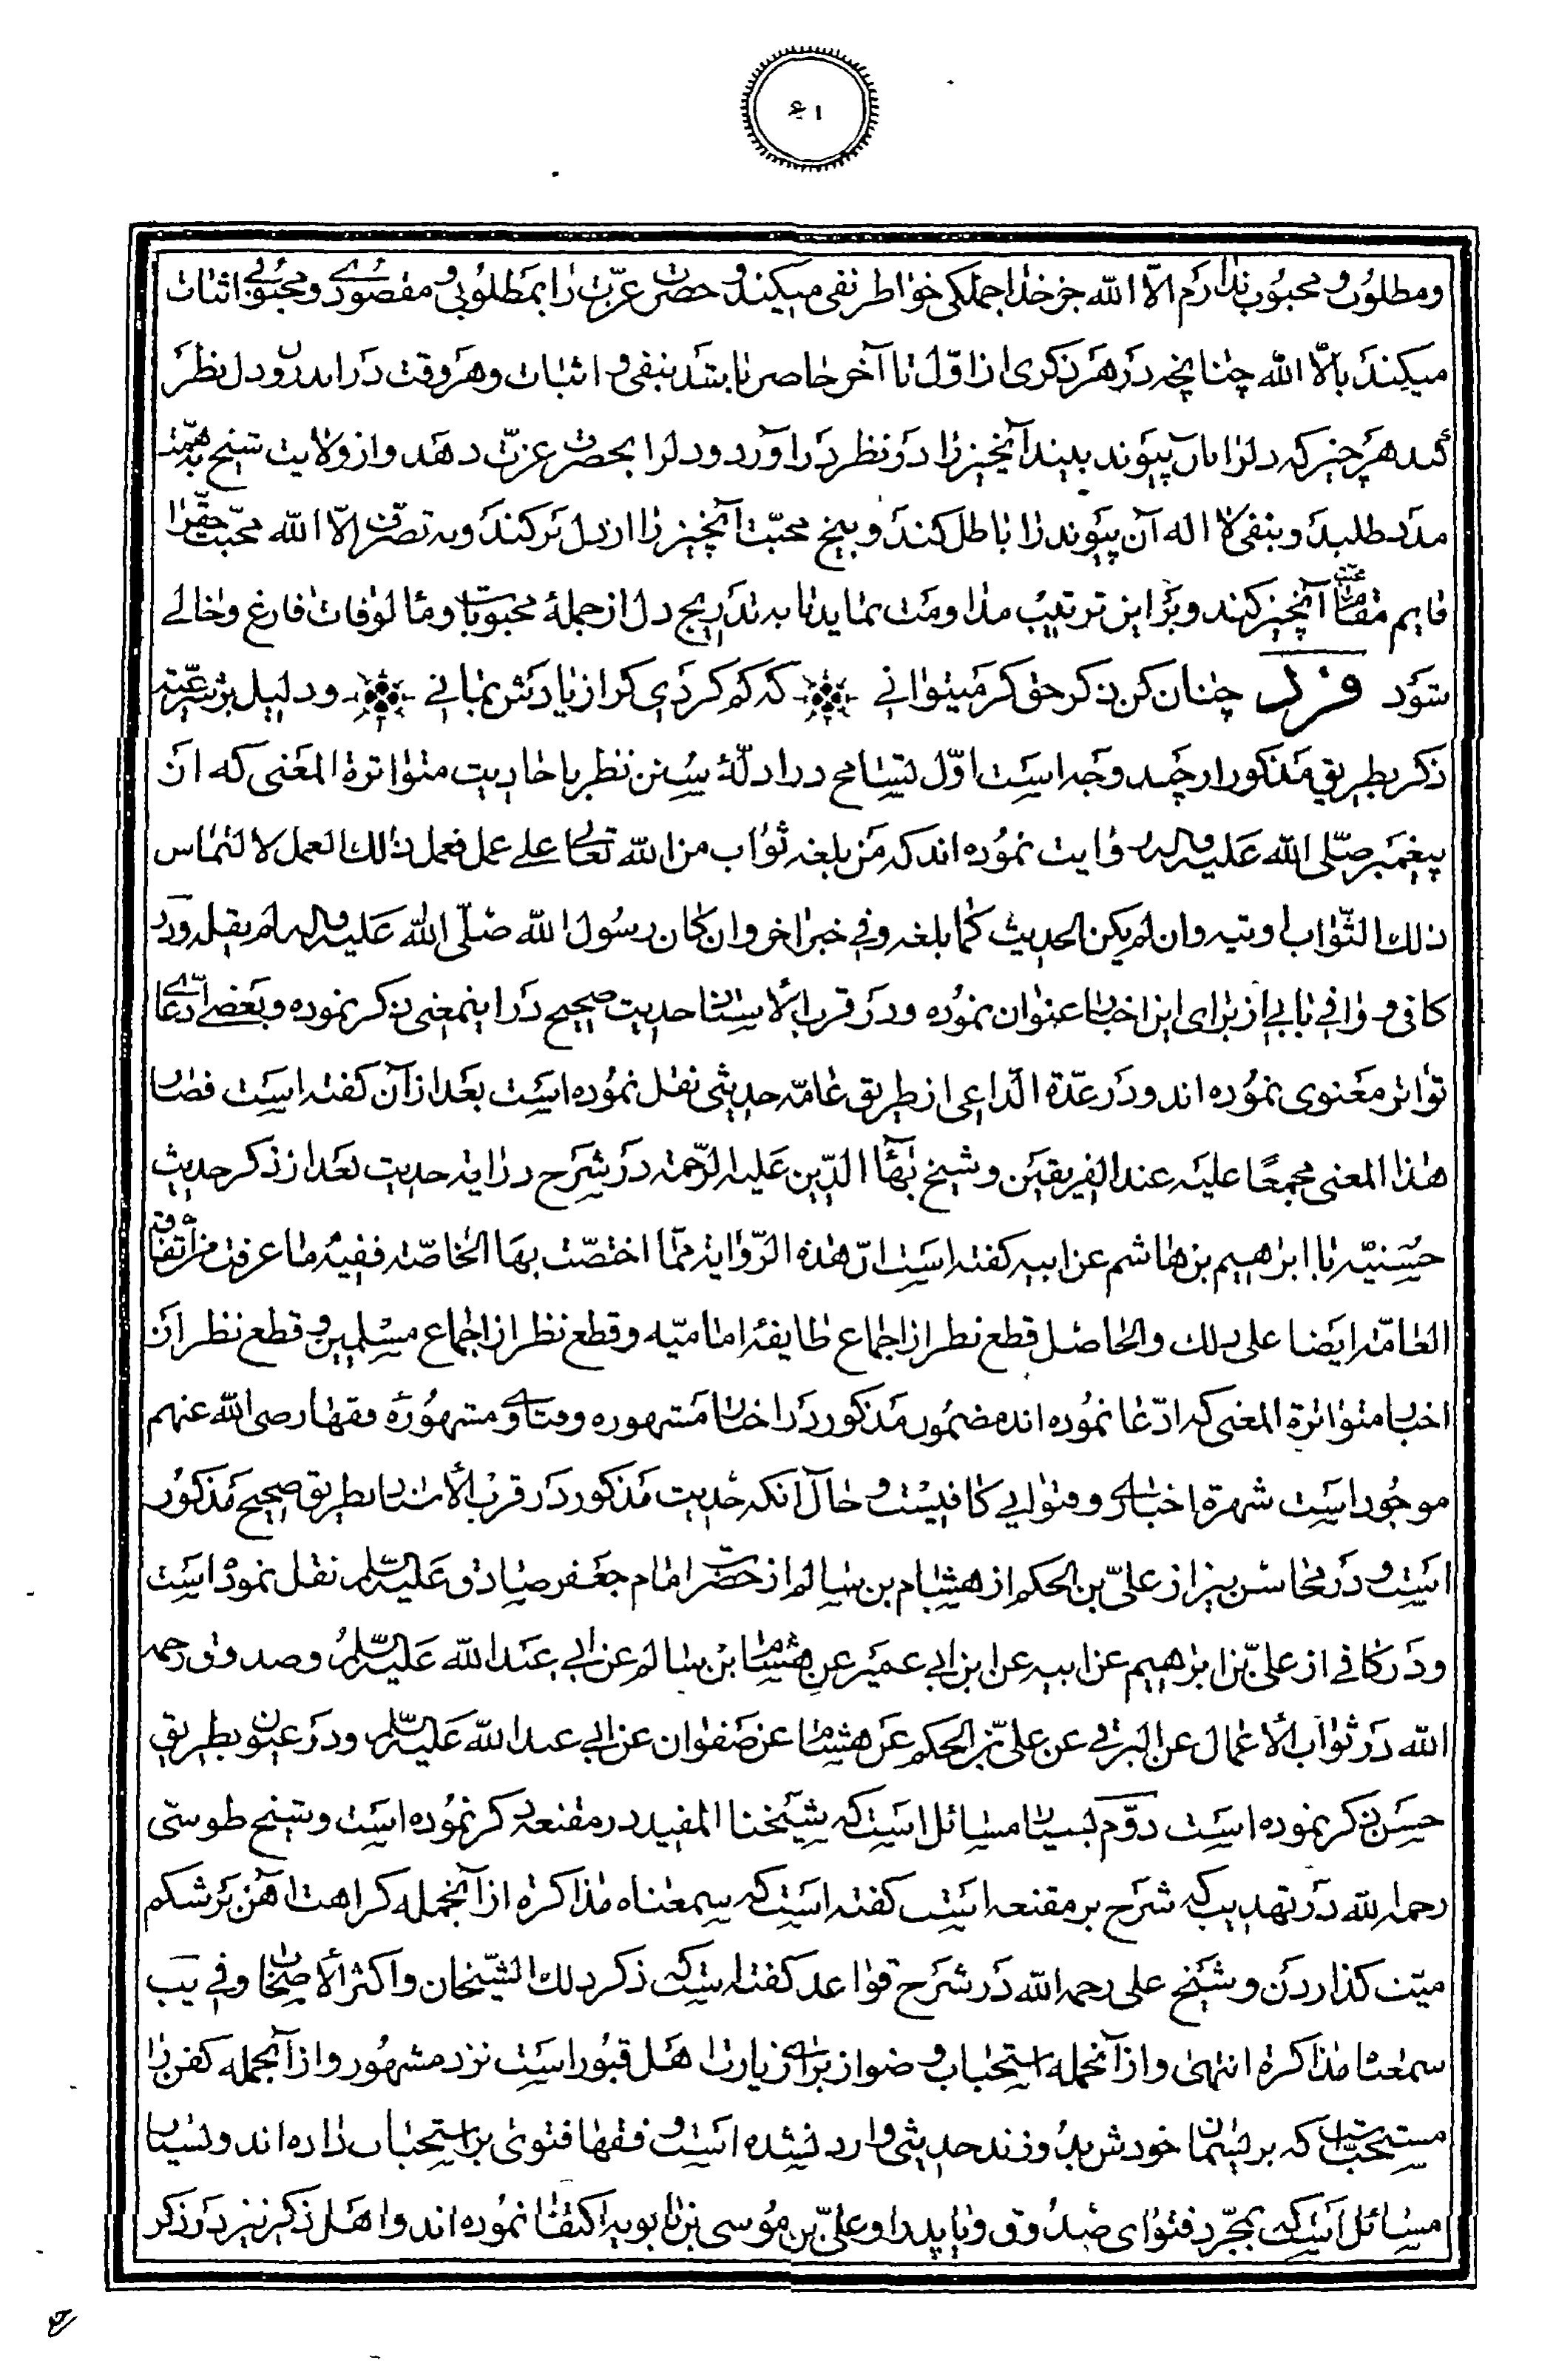 ۴۱
ومطلوب و محبوب ندارم الّا الله جز خدا جملکی خواطر نفی میکند و حضرت عزّت را بمطلوبی و مقصودی و محبوبی اثبات
میکند بالّا الله چنانچه در هر ذکری از اوّل تا آخر حاضر باشد بنفی و اثبات و هر وقت در اندرون دل نظر
کند هر چیز که دلرا بان پیوند بیند آنچیز را در نظر در آورد و دلرا بحضرت عزّت دهد و از ولایت شیخ بهمّت
مدد طلبد و بنفی لا اله آن پیوند را باطل کند و بیخ محبّت آنچیز را از دل برکند و به تصرّف الّا الله محبّت حقرا
قایم مقام محبّت آنچیز کند و بر این ترتیب مداومت نماید تا به تدریج دل از جملهٔ محبوبات و مالوفات فارغ و خالے
شود فرد چنان کن ذکر حق کر میتوانی که کم کردی کر از یادش بمانی و دلیل بر شرعیّت
ذکر بطریق مذکور از چند وجه است اوّل تسامح در ادلّهٔ سنن نظر باحادیث متواترة المعنی که از
پیغمبر صلّی الله علیه و اله روایت نموده اند که من بلغه ثواب من الله تعالی علی عمل فعمل ذالك العمل لالتماس
ذلك الثّواب اوتیه وان لم یکن الحدیث کما بلغه وفی خبر اخر وان کان رسول الله صلّی الله علیه واله لم یقله ودر
کافی و وافی بابی از برای این اخبار عنوان نموده ودر قرب الاسناد حدیث صحیح در اینمعنی ذکر نموده و بعضی ادّعای
تواتر معنوی نموده اند و در عدّة الدّاعی از طریق عامّه حدیثی نقل نموده است بعد از آن کفته است فصار
هذا المعنی مجمعًا علیه عند الفریقین و شیخ بهاء الدّین علیه الرّحمة در شرح درایة حدیث بعد از ذکر حدیث
حسنیّه با ابراهیم بن هاشم عن ابیه کفته است انّ هذه الرّوایة ممّا اختصّت بها الخاصّة ففیه ما عرفت من اتّفاق
العامّة ایضا علی ذلك والحاصل قطع نظر از اجماع طایفهٔ امامیّه و قطع نظر از اجماع مسلمین و قطع نظر از
اخبار متواترة المعنی که ادّعا نموده اند مضمون مذکور در اخبار مشهوره و فتاوی مشهورهٔ فقها رضی الله عنهم
موجود است شهرة اخباری و فتوایی کافیست و حال آنکه حدیث مذکور در قرب الاسناد بطریق صحیح مذکور
است و در محاسن نیز از علیّ بن الحکم از هشام بن سالم از حضرت امام جعفر صادق علیه السّلم نقل نموده است
و در کافی از علیّ بن ابراهیم عن ابیه عن ابن ابی عمیر عن هشام بن سالم عن ابی عبد الله علیه السّلم و صدوق رحمه
الله در ثواب الاعمال عن البرقی عن علیّ بن الحکم عن هشام عن صفوان عن ابی عبد الله علیه السّلم و در عیون بطریق
حسن ذکر نموده است دوّم بسیار مسائل است که شیخنا المفید در مقنعه ذکر نموده است و شیخ طوسی
رحمه الله در تهذیب که شرح بر مقنعه است کفته است که سمعناه مذاکرة از آنجمله کراهت اهن بر شکم
میّت کذاردن و شیخ علی رحمه الله در شرح قواعد کفته است که ذکر ذلك الشّیخان و اکثر الاصحاب وفی یب
سمعنا مذاکرة انتهی و از آنجمله استحباب وضو از برای زیارت اهل قبور است نزد مشهور و از آنجمله کفن را
مستحبّ است که بریسمان خودش بدوزند حدیثی وارد نشده است و فقها فتوی بر استحباب داده اند و بسیار
مسائل است که بمجرّد فتوای صدوق و یا پدر او علیّ بن موسی بن بابویه اکتفا نموده اند و اهل ذکر نیز در ذکر